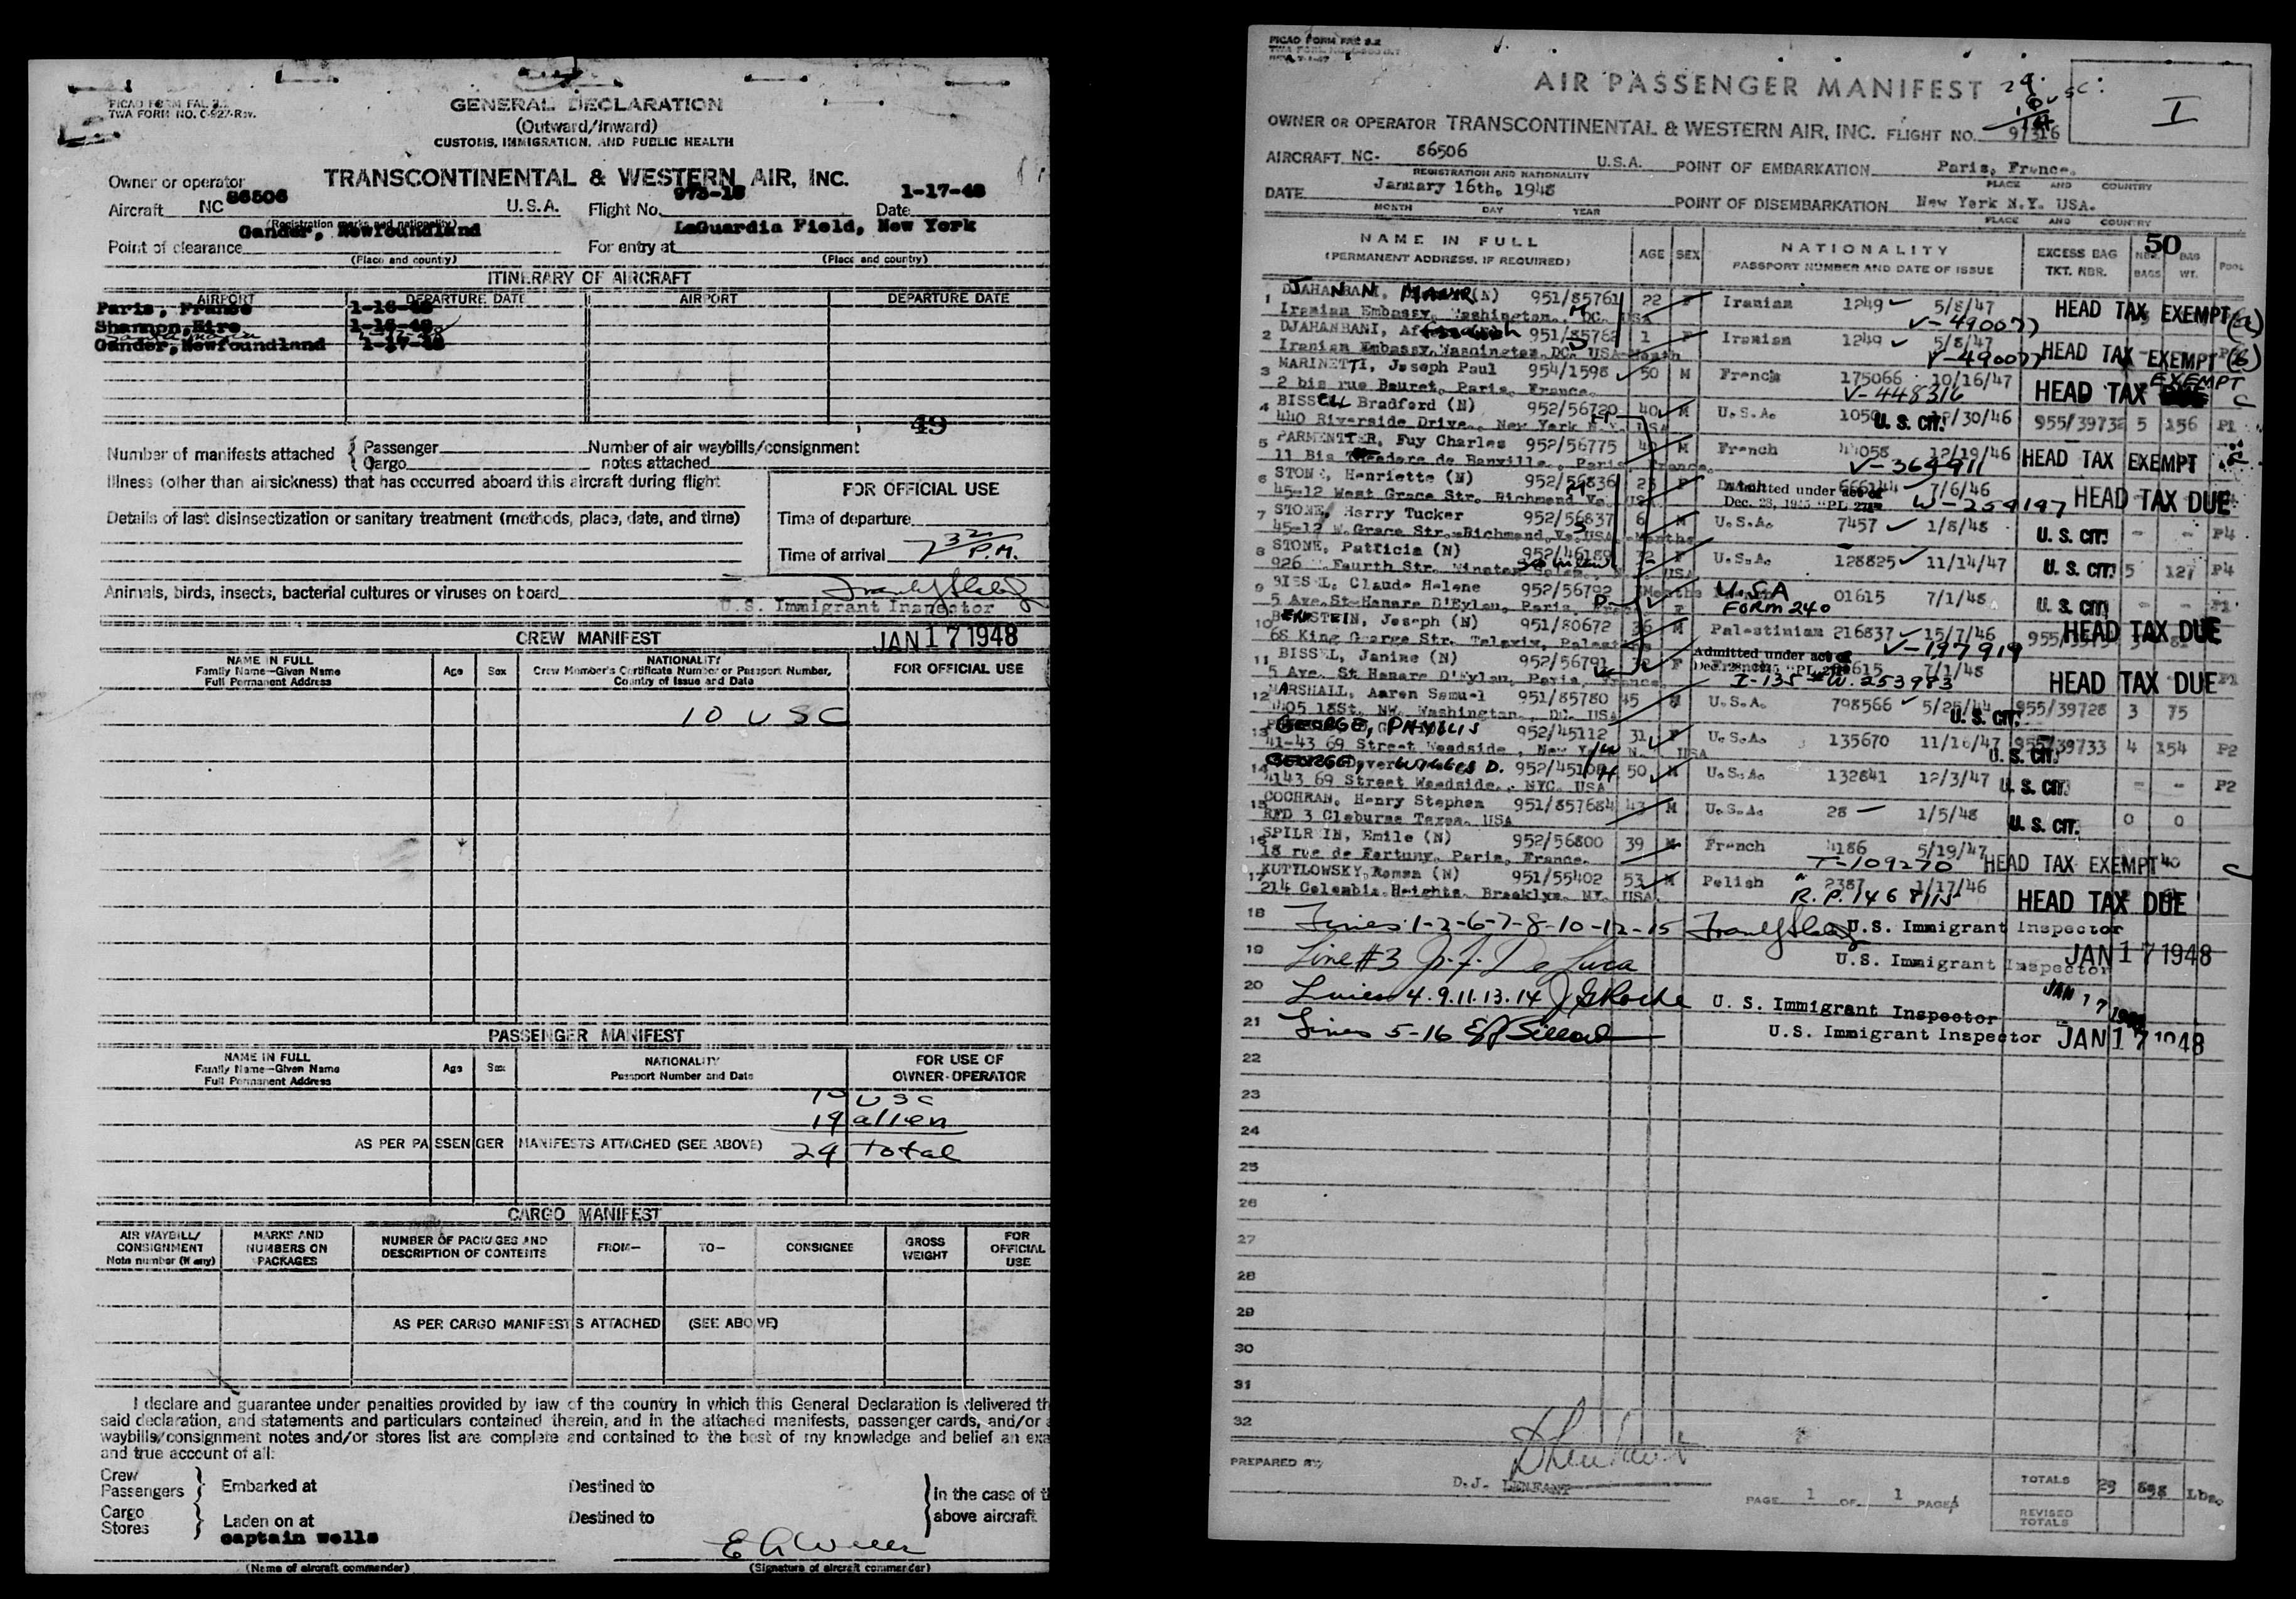 PICAO FORM FAL 2.1
TWA FORM NO. C-927-Rev.
GENERAL DECLARATION
(Outward/Inward)
CUSTOMS, IMMIGRATION, AND PUBLIC HEALTH
Owner or operator TRANSCONTINENTAL & WESTERN AIR, INC.
Aircraft NC 86506 U.S.A. Flight No. 973-16 Date 1-17-48
(Registration marks and nationality)
Point of clearance Gander, Newfoundland For entry at LaGuardia Field, New York
(Place and country) (Place and country)
ITINERARY OF AIRCRAFT
AIRPORT DEPARTURE DATE AIRPORT DEPARTURE DATE
Paris, France 1-16-48
Shannon, Eire 1-16-48
Gander, Newfoundland 1-17-48
49
Number of manifests attached { Passenger Number of air waybills/consignment
Cargo notes attached
Illness (other than airsickness) that has occurred aboard this aircraft during flight
FOR OFFICIAL USE
Details of last disinsectization or sanitary treatment (methods, place, date, and time)
Time of departure
Time of arrival 7 32 P.M.
Animals, birds, insects, bacterial cultures or viruses on board
U.S. Immigrant Inspector
CREW MANIFEST JAN 17 1948
NAME IN FULL
Family Name—Given Name
Full Permanent Address
Age Sex
NATIONALITY
Crew Member's Certificate Number or Passport Number,
Country of Issue and Date
FOR OFFICIAL USE
10 USC
PASSENGER MANIFEST
NAME IN FULL
Family Name—Given Name
Full Permanent Address
Age Sex
NATIONALITY
Passport Number and Date
FOR USE OF
OWNER-OPERATOR
10 USC
19 alien
AS PER PASSENGER MANIFESTS ATTACHED (SEE ABOVE) 29 Total
CARGO MANIFEST
AIR WAYBILL/
CONSIGNMENT
Note number (if any)
MARKS AND
NUMBERS ON
PACKAGES
NUMBER OF PACKAGES AND
DESCRIPTION OF CONTENTS
FROM— TO— CONSIGNEE
GROSS
WEIGHT
FOR
OFFICIAL
USE
AS PER CARGO MANIFESTS ATTACHED (SEE ABOVE)
I declare and guarantee under penalties provided by law of the country in which this General Declaration is delivered th
said declaration, and statements and particulars contained therein, and in the attached manifests, passenger cards, and/or a
waybills/consignment notes and/or stores list are complete and contained to the best of my knowledge and belief an exa
and true account of all:
Crew
Passengers } Embarked at Destined to
Cargo
Stores } Laden on at Destined to
in the case of th
above aircraft
captain wells
(Name of aircraft commander) (Signature of aircraft commander)
PICAO FORM FAL 2.2
AIR PASSENGER MANIFEST
I
OWNER OR OPERATOR TRANSCONTINENTAL & WESTERN AIR, INC. FLIGHT NO. 97316
AIRCRAFT NC- 86506 U.S.A. POINT OF EMBARKATION Paris, France.
REGISTRATION AND NATIONALITY PLACE AND COUNTRY
DATE January 16th, 1948 POINT OF DISEMBARKATION New York N.Y. USA.
MONTH DAY YEAR PLACE AND COUNTRY
50
NAME IN FULL
(PERMANENT ADDRESS, IF REQUIRED)
AGE SEX
NATIONALITY
PASSPORT NUMBER AND DATE OF ISSUE
EXCESS BAG
TKT. NBR.
NBR. BAGS BAG WT. POOL
1 DJAHANBANI, (N) 951/85761 22 F Iranian 1249 5/8/47 HEAD TAX EXEMPT
Iranian Embassy, Washington, DC. USA V-490077
2 DJAHANBANI, 951/85762 1 F Iranian 1249 5/8/47 HEAD TAX EXEMPT
Iranian Embassy, Washington, DC. USA Month V-490077
3 MARINETTI, Joseph Paul 954/1598 50 M French 175066 10/16/47 HEAD TAX EXEMPT
2 bis rue Beuret, Paris, France. V-448316
4 BISSELL Bradford (N) 952/56720 40 M U.S.A. 1050 /30/46 U.S. CIT. 955/39732 5 156 P1
440 Riverside Drive., New York N.Y. USA
5 PARMENTIER, Fuy Charles 952/56775 M French 12/19/46 HEAD TAX EXEMPT
11 Bis Theodore de Banville., Paris, France. V-364911
6 STONE, Henriette (N) 952/56836 23 F 666144 7/6/46 HEAD TAX DUE
45-12 West Grace Str. Richmond Va. USA Admitted under act of Dec. 28, 1945 "PL 271" W-259197
7 STONE, Harry Tucker 952/56837 6 M U.S.A. 7457 1/8/48 U.S. CIT. - - P4
45-12 W. Grace Str. Richmond, Va. USA Months
8 STONE, Patricia (N) 952/46189 F U.S.A. 128825 11/14/47 U.S. CIT. 5 127 P4
926 Fourth Str. Winston USA
9 BISSEL, Claude Helene 952/56792 Months F U.S.A 01615 7/1/48 U.S. CIT. - - P1
5 Ave. St Honare D'Eylau, Paris, France Form 240
10 BERNSTEIN, Joseph (N) 951/80672 36 M Palestinian 216837 15/7/46 HEAD TAX DUE
68 King George Str. Telaviv, Palestine V-197919
11 BISSEL, Janine (N) 952/56791 F 7/1/48 HEAD TAX DUE P1
5 Ave. St Honare D'Eylau, Paris, France Admitted under act of Dec. 28, 1945 "PL 271" I-135 W. 253983
12 MARSHALL, Aaron Samuel 951/85780 45 M U.S.A. 798566 U.S. CIT. 955/39728 3 75
18St. NW. Washington., DC. USA
13 GEORGE, PHYLLIS 952/45112 31 F U.S.A. 135670 11/16/47 955/39733 4 154 P2
41-43 69 Street Woodside, New York N. USA U.S. CIT.
14 50 M U.S.A. 132641 12/3/47 U.S. CIT. - - P2
4143 69 Street Woodside., NYC. USA
15 COCHRAN, Henry Stephen 951/857684 43 M U.S.A. 28 1/5/48 U.S. CIT. 0 0
RFD 3 Cleburne Texas. USA
16 Emile (N) 952/56800 39 M French 4186 5/19/47 HEAD TAX EXEMPT 40
18 rue de Fortuny, Paris, France. T-109270
17 KUTYLOWSKY, Roman (N) 951/55402 53 M Polish 2387 1/17/46 HEAD TAX DUE
214 Columbia Heights, Brooklyn, NY. USA. R.P. 1468115
18 Lines 1-2-6-7-8-10-12-15 U.S. Immigrant Inspector
19 Line #3 J. F. De Luca U.S. Immigrant Inspector JAN 17 1948
20 Lines 4.9.11.13.14 U. S. Immigrant Inspector JAN 17
21 Lines 5-16 U.S. Immigrant Inspector JAN 17 1948
22
23
24
25
26
27
28
29
30
31
32
PREPARED BY
D.J. LENFANT
PAGE 1 OF 1 PAGES
TOTALS 29 898 Lbs.
REVISED
TOTALS